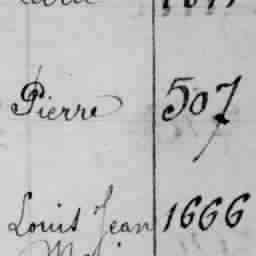 Pierre 507
Louis Jean 1666